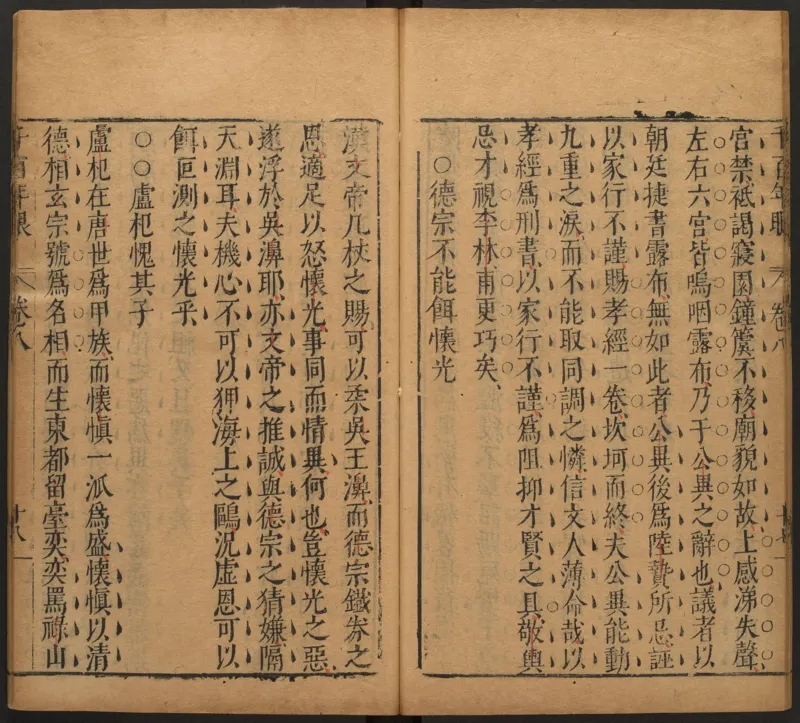 千百年眼 卷八 十七
宮禁祗謁寢園鐘簴不移廟貌如故上感涕失聲
左右六宮皆嗚咽露布乃于公異之辭也議者以
朝廷捷書露布無如此者公異後爲陸贄所忌誣
以家行不謹賜孝經一卷坎坷而終夫公異能動
九重之淚而不能取同調之憐信文人薄命哉以
孝經爲刑書以家行不謹爲阻抑才賢之具敬輿
忌才視李林甫更巧矣
○德宗不能餌懷光
漢文帝几杖之賜可以柔吳王濞而德宗鐵券之
恩適足以怒懷光事同而情異何也豈懷光之惡
遂浮於吳濞耶亦文帝之推誠與德宗之猜嫌隔
天淵耳夫機心不可以狎海上之鷗況虛恩可以
餌叵測之懷光乎
○○盧杞愧其子
盧杞在唐世爲甲族而懷愼一派爲盛懷愼以清
德相玄宗號爲名相而生東都留臺奕奕罵祿山
千百年眼 卷八 十八